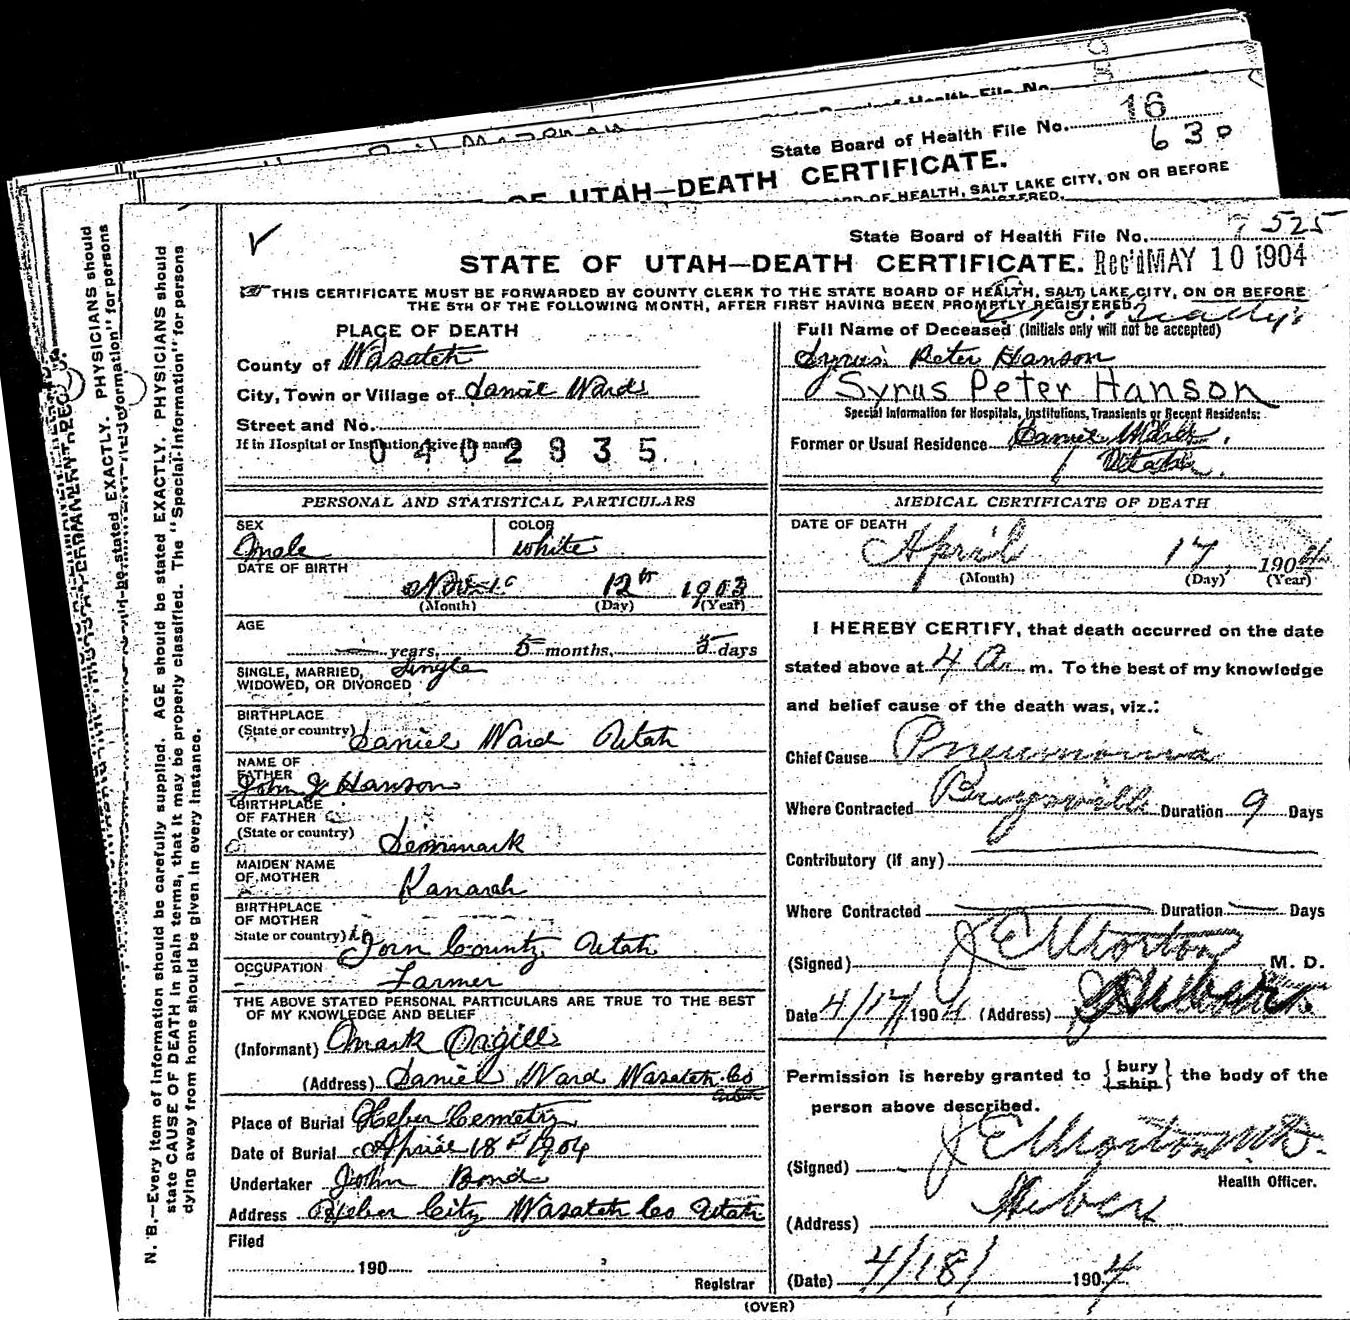 State Board of Health File No. 16
630
OF UTAH—DEATH CERTIFICATE.
OF HEALTH, SALT LAKE CITY, ON OR BEFORE
PHYSICIANS should
be stated EXACTLY.
N. B.—Every item of information should be carefully supplied. AGE should be stated EXACTLY. PHYSICIANS should
state CAUSE OF DEATH in plain terms, that it may be properly classified. The "Special Information" for persons
dying away from home should be given in every instance.
State Board of Health File No. 525
STATE OF UTAH—DEATH CERTIFICATE. Rec'd MAY 10 1904
THIS CERTIFICATE MUST BE FORWARDED BY COUNTY CLERK TO THE STATE BOARD OF HEALTH, SALT LAKE CITY, ON OR BEFORE
THE 5TH OF THE FOLLOWING MONTH, AFTER FIRST HAVING BEEN PROMPTLY REGISTERED.
PLACE OF DEATH
County of Wasatch
City, Town or Village of Daniel Ward
Street and No.
If in Hospital or Institution, give its name
0402835
PERSONAL AND STATISTICAL PARTICULARS
SEX Male
COLOR White
DATE OF BIRTH
12th 1903
(Month) (Day) (Year)
AGE
years, 5 months, 5 days
SINGLE, MARRIED, WIDOWED, OR DIVORCED Single
BIRTHPLACE
(State or country) Daniel Ward Utah
NAME OF FATHER
John J Hanson
BIRTHPLACE OF FATHER
(State or country) Denmark
MAIDEN NAME OF MOTHER
Kanarah
BIRTHPLACE OF MOTHER
State or country) Iron County Utah
OCCUPATION Farmer
THE ABOVE STATED PERSONAL PARTICULARS ARE TRUE TO THE BEST
OF MY KNOWLEDGE AND BELIEF
(Informant) Mark Orgill
(Address) Daniel Ward Wasatch Co
Utah
Place of Burial Heber Cemetry
Date of Burial April 18th 1904
Undertaker John Bond
Address Heber City Wasatch Co Utah
Filed
190
Registrar
Full Name of Deceased (Initials only will not be accepted)
Syrus Peter Hanson
Syrus Peter Hanson
Special Information for Hospitals, Institutions, Transients or Recent Residents:
Former or Usual Residence Daniel Ward
Utah
MEDICAL CERTIFICATE OF DEATH
DATE OF DEATH
April 17, 1904
(Month) (Day) (Year)
I HEREBY CERTIFY, that death occurred on the date
stated above at 4 a. m. To the best of my knowledge
and belief cause of the death was, viz.:
Chief Cause Pneumonia
Where Contracted Duration 9 Days
Contributory (if any)
Where Contracted Duration Days
(Signed) J E Morton M. D.
Date 4/17/1904 (Address) Heber
Permission is hereby granted to {bury ship} the body of the
person above described.
(Signed) J E Morton MD.
Health Officer.
(Address) Heber
(Date) 4/18/ 1904
(OVER)